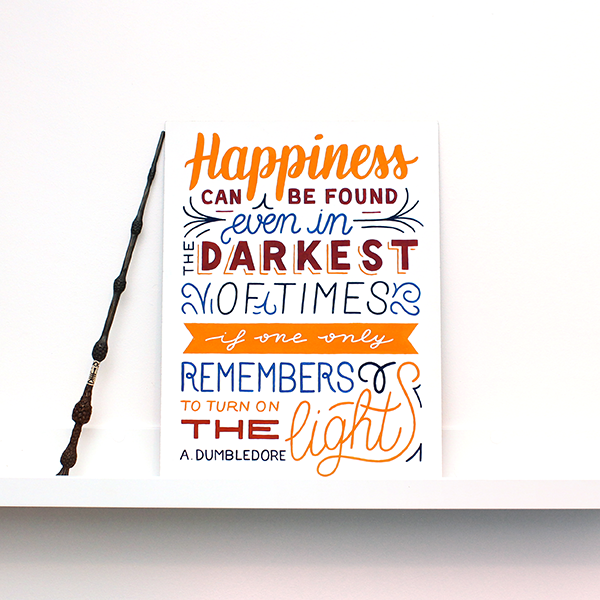 Happiness
CAN BE FOUND
even in
THE DARKEST
OF TIMES
if one only
REMEMBERS
TO TURN ON
THE light
A. DUMBLEDORE